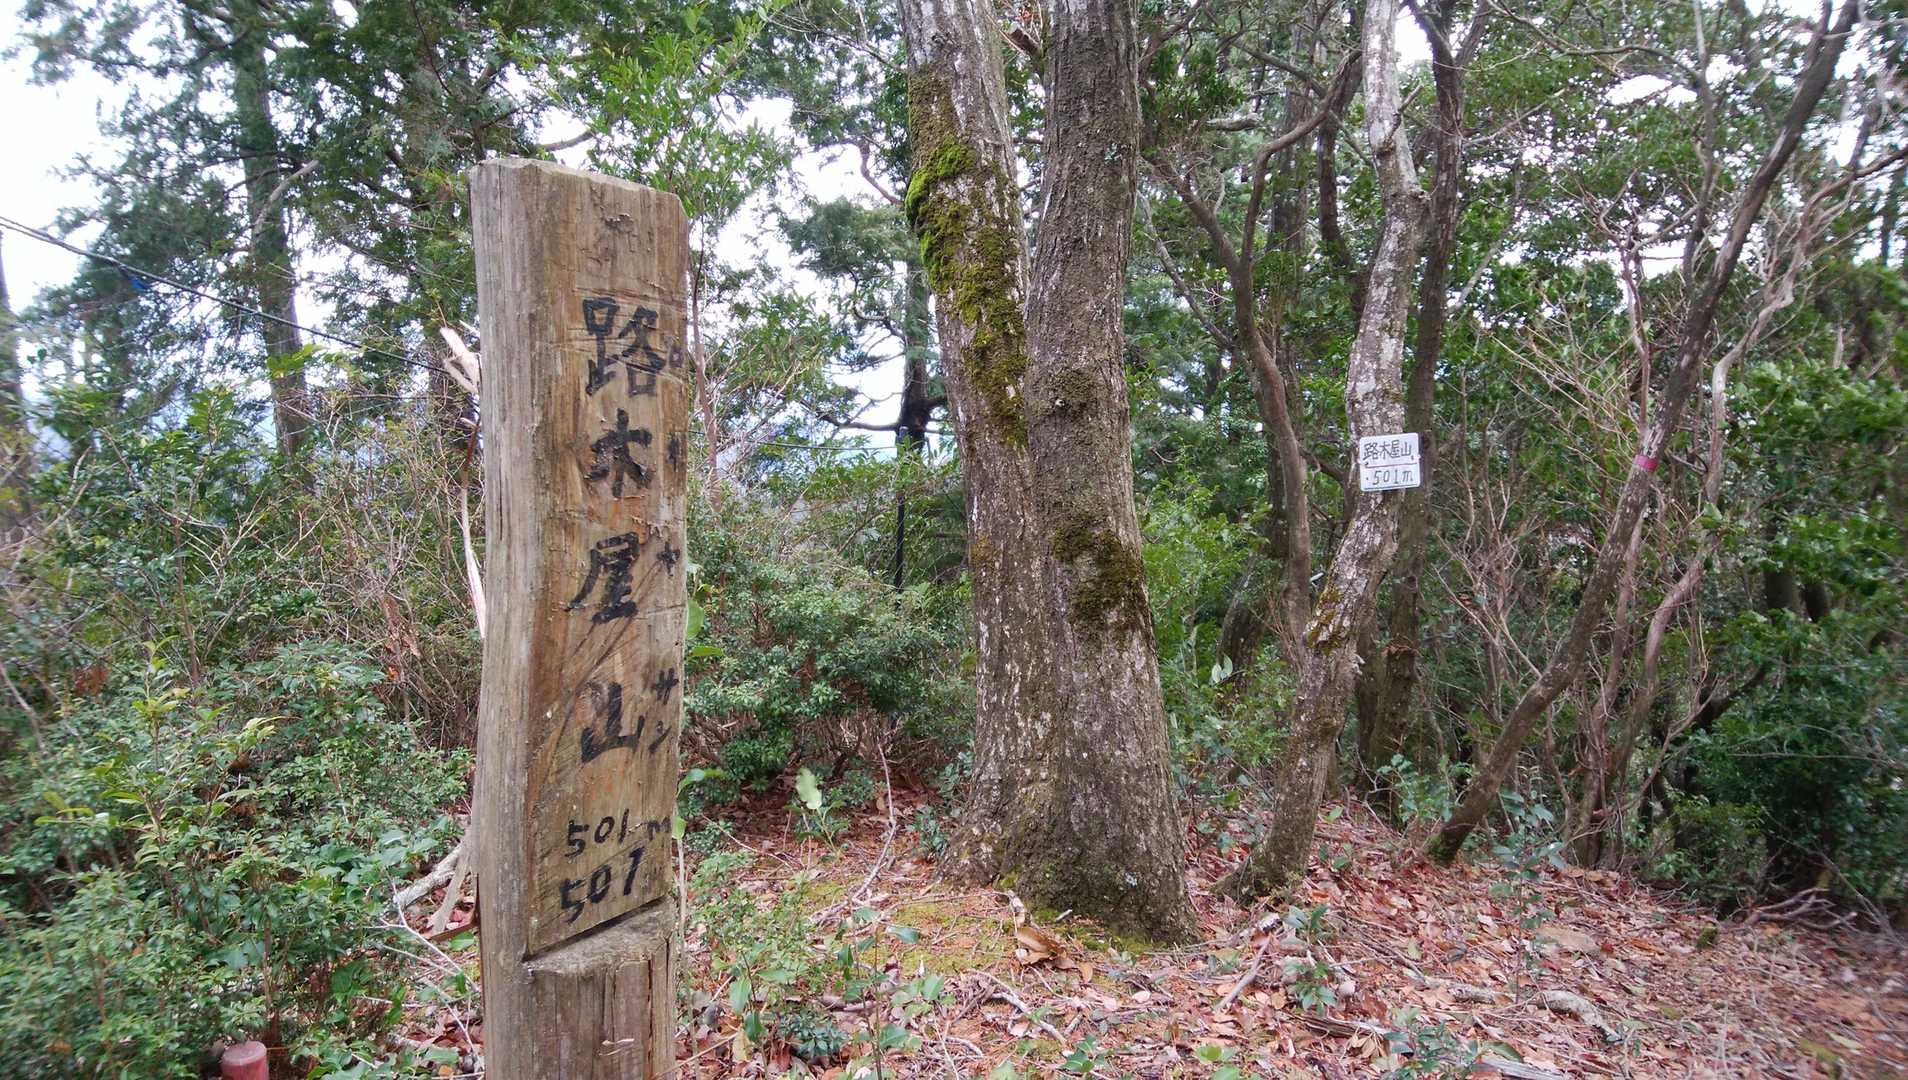 路木屋山
ロキヤサン
501m
501
路木屋山
501m